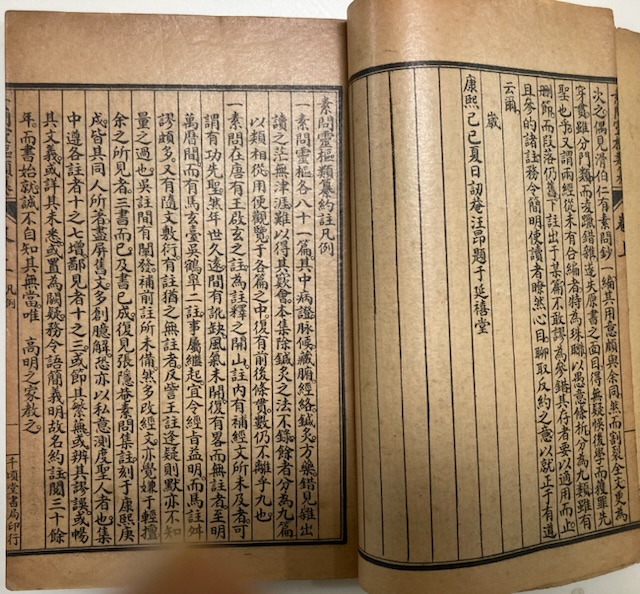 卷上
火之偶見滑伯仁有素問鈔一編其用意頗與余同然而割裂全文更為
穿貫雖分門類而凌躐錯雜遂失原書之面目得無疑悞後學而獲罪先
聖也乎又謂兩經從未有合編者特為珠聯以愚意條析分為九類雖有
刪節而段落仍舊下註出于某篇不敢謬為參錯其存者要以適用而止
且參的諸註務令簡明使讀者瞭然心目聊取反約之意以就正于有道
云爾
歲
康熙己巳夏日訒庵汪昂題于延禧堂
素問靈樞類纂約註凡例
一素問靈樞各八十一篇其中病證脉候藏腑經絡鍼灸方藥錯見雜出
讀之茫無津涯難以得其窾會本集除鍼灸之法不錄餘者分為九篇
以類相從用便觀覽于各篇之中復有前後條貫數仍不離乎九也
一素問在唐有王啟玄之註為註釋之開山註內有補經文所未及者可
謂有功先聖然年世久遠間有訛缺風氣未開復有畧而無註者至明
萬曆間而有馬玄臺吳鶴臯二註事屬繼起宜令經旨益明而馬註舛
謬頗多又有隨文敷衍有註猶之無註者反訾王註逢疑則默亦不知
量之過也吳註間有闡發補前註所未備然多改經文亦覺嫌于輕擅
余之所見者三書而已及書已成復見張隱菴素問集註刻于康熙庚
戌皆其同人所著盡屏舊文多創臆解恐亦以私意測度聖人者也集
中遵各註者十之七增鄙見者十之三或節其繁蕪或辨其謬誤或暢
其文義或詳其未悉或置為闕疑務令語簡義明故名約註閱三十餘
年而書始就誠不自知其無當唯 高明之家教之
凡例
千頃堂書局印行